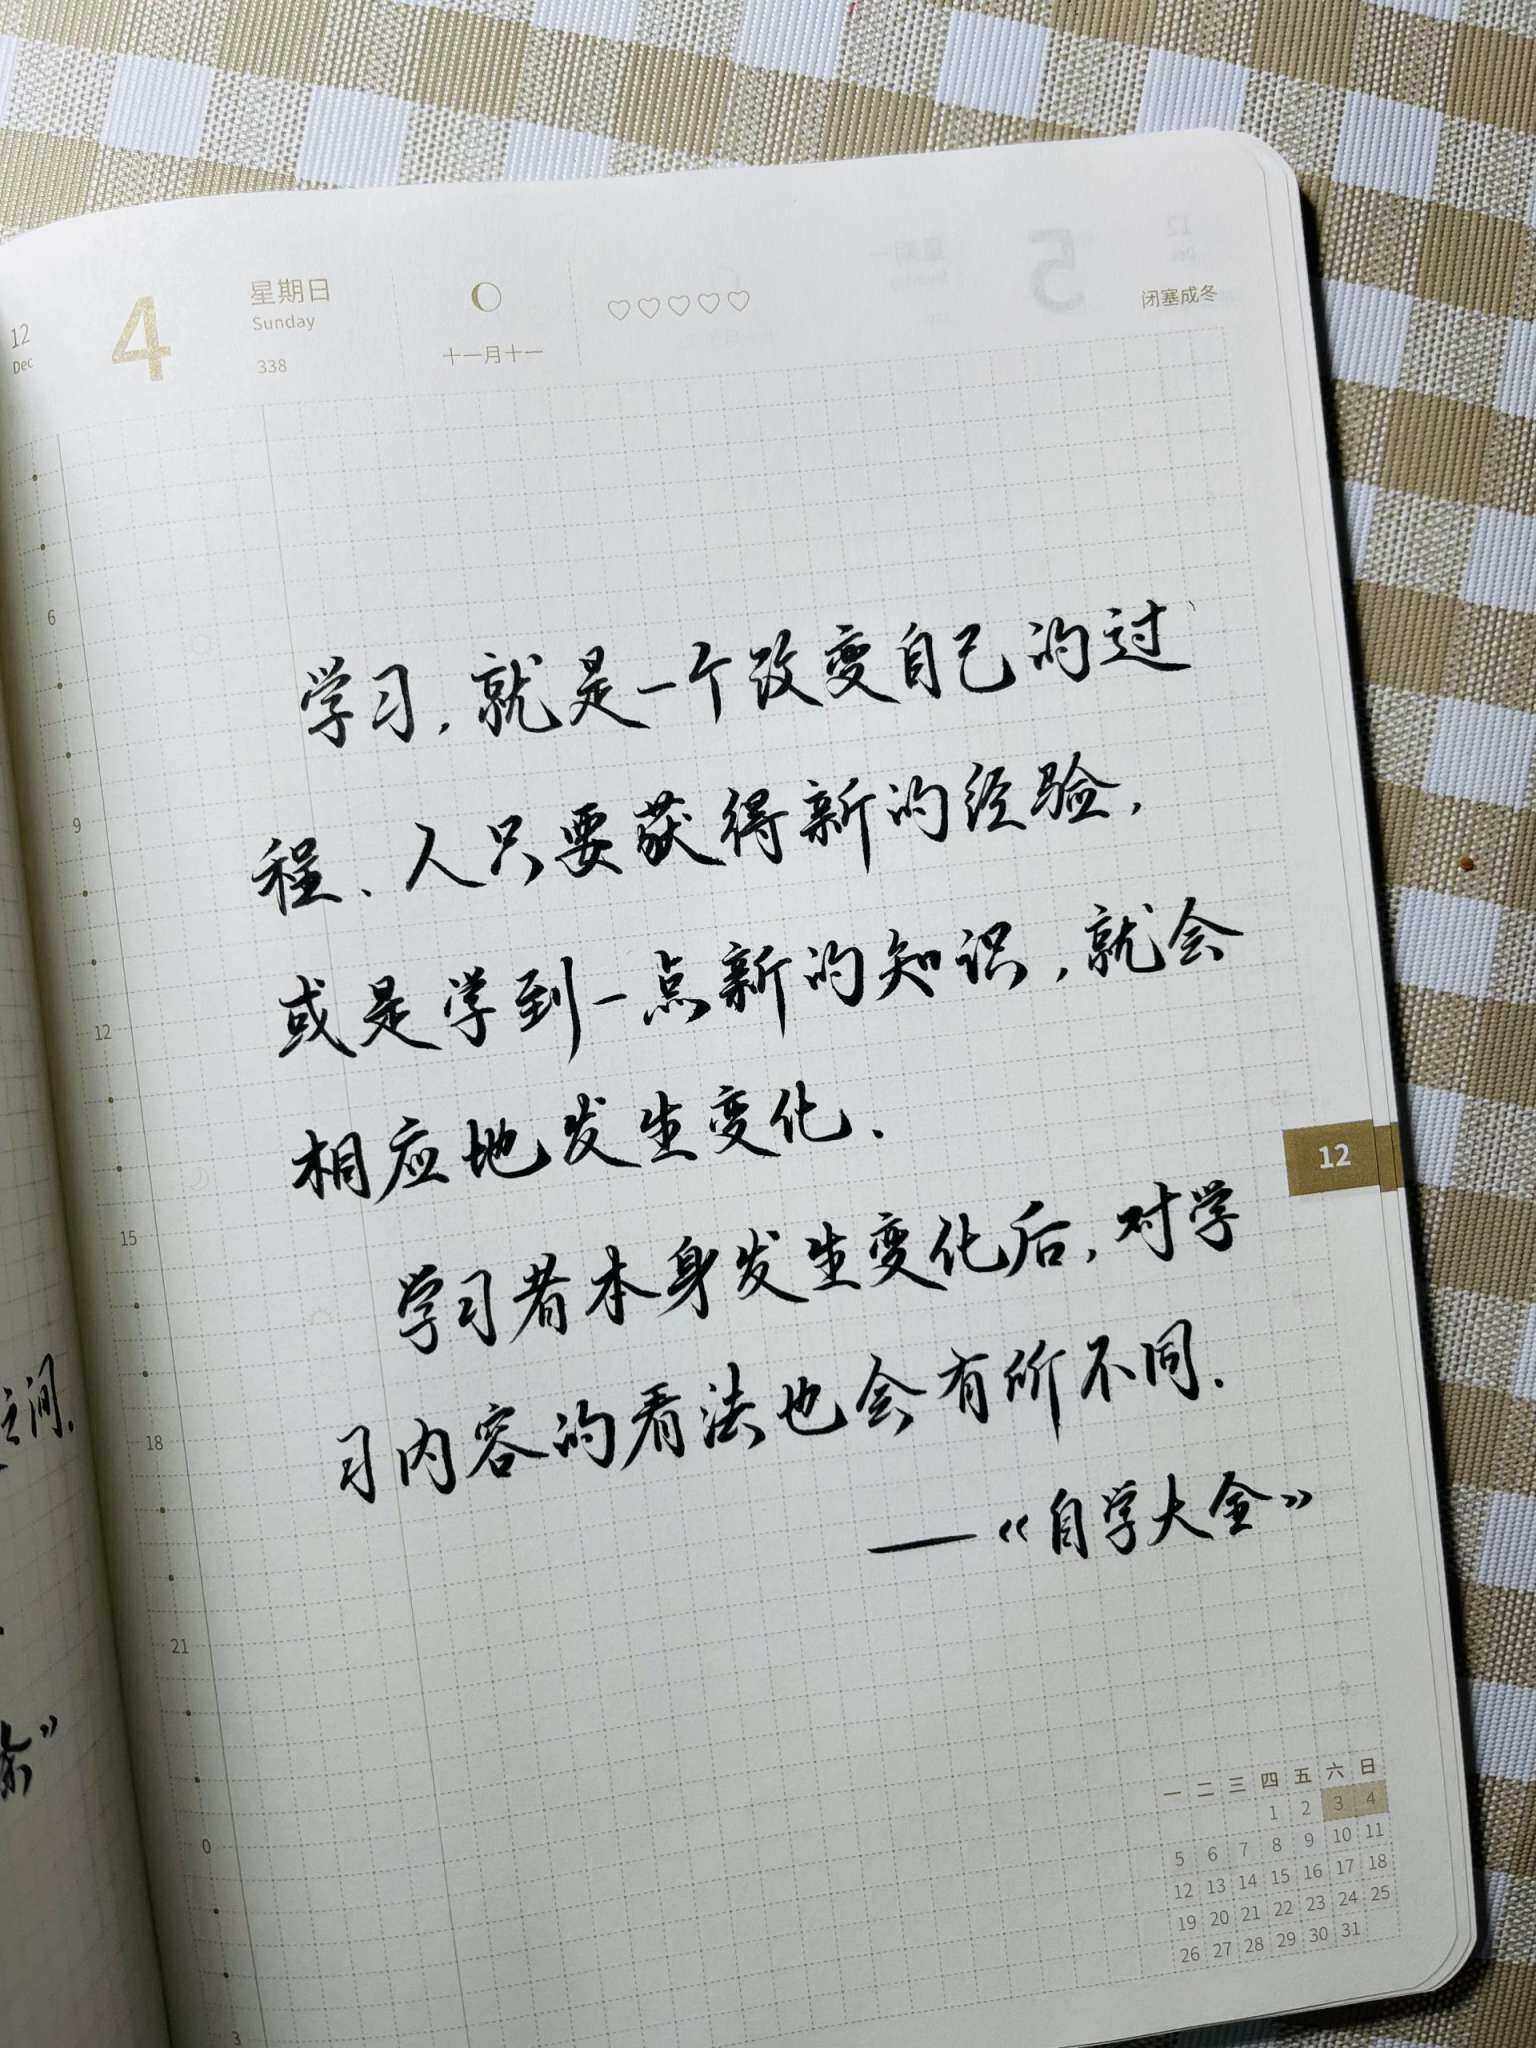 12
Dec
4
星期日
Sunday
338
十一月十一
闭塞成冬
学习，就是一个改变自己的过
程、人只要获得新的经验，
或是学到一点新的知识，就会
相应地发生变化.
学习者本身发生变化后，对学
习内容的看法也会有所不同.
——《自学大全》
6
9
12
15
18
21
0
3
12
之间.
余》
一 二 三 四 五 六 日
1 2 3 4
5 6 7 8 9 10 11
12 13 14 15 16 17 18
19 20 21 22 23 24 25
26 27 28 29 30 31